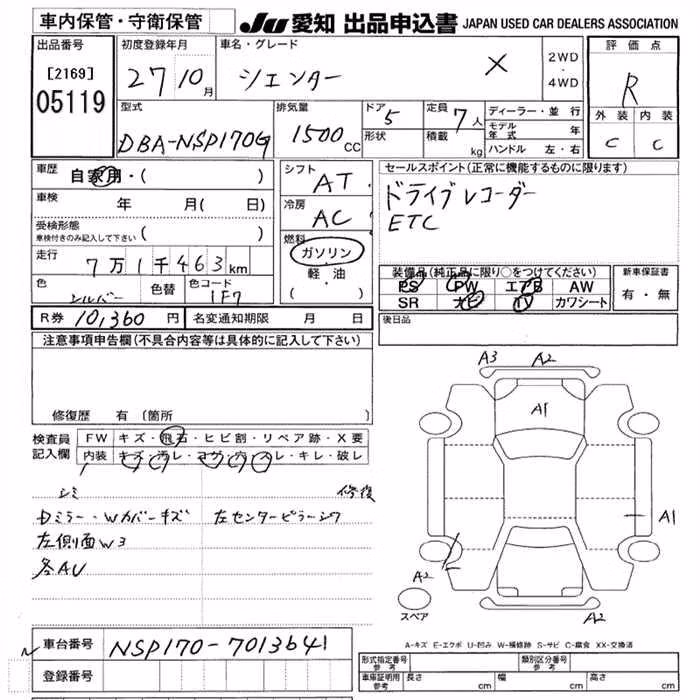 車内保管・守衛保管
JU 愛知 出品申込書 JAPAN USED CAR DEALERS ASSOCIATION
出品番号
[2169]
05119
初度登録年月
27 10月
車名・グレード
シエンター X
2WD
・
4WD
評価点
R
外装 内装
C C
型式
DBA-NSP170G
排気量
1500 CC
ドア 5
形状
定員 7人
積載 kg
ディーラー・並行
モデル年式 年
ハンドル 左・右
車歴 自家用・( )
車検 年 月( 日)
受検形態
車検付きのみ記入して下さい ( )
走行 7万1千463km
色 シルバー 色替 色コード 1F7
シフト AT
冷房 AC
燃料
ガソリン
軽・油
( ・ )
セールスポイント(正常に機能するものに限ります)
ドライブレコーダー
ETC
装備品(純正品に限り○をつけてください)
PS PW エアB AW
SR ナビ TV カワシート
新車保証書
有・無
後日品
R券 10,360円 名変通知期限 月 日
注意事項申告欄(不具合内容等は具体的に記入して下さい)
修復歴 有(箇所 )
検査員記入欄
FW キズ・飛石・ヒビ割・リペア跡・X要
内装 キズ・汚レ・コゲ・穴・スレ・キレ・破レ
シミ 修復
Dミラー・Wカバーキズ 左センターピラーシワ
左側面W3
各AU
A3 A2
A1
A1
A2
A2
スペア
A-キズ E-エクボ U-凹み W-補修跡 S-サビ C-腐食 XX-交換済
車台番号 NSP170-7013641
登録番号
形式指定番号 参考
類別区分番号 参考
車庫証明用 参考 長さ cm 幅 cm 高さ cm